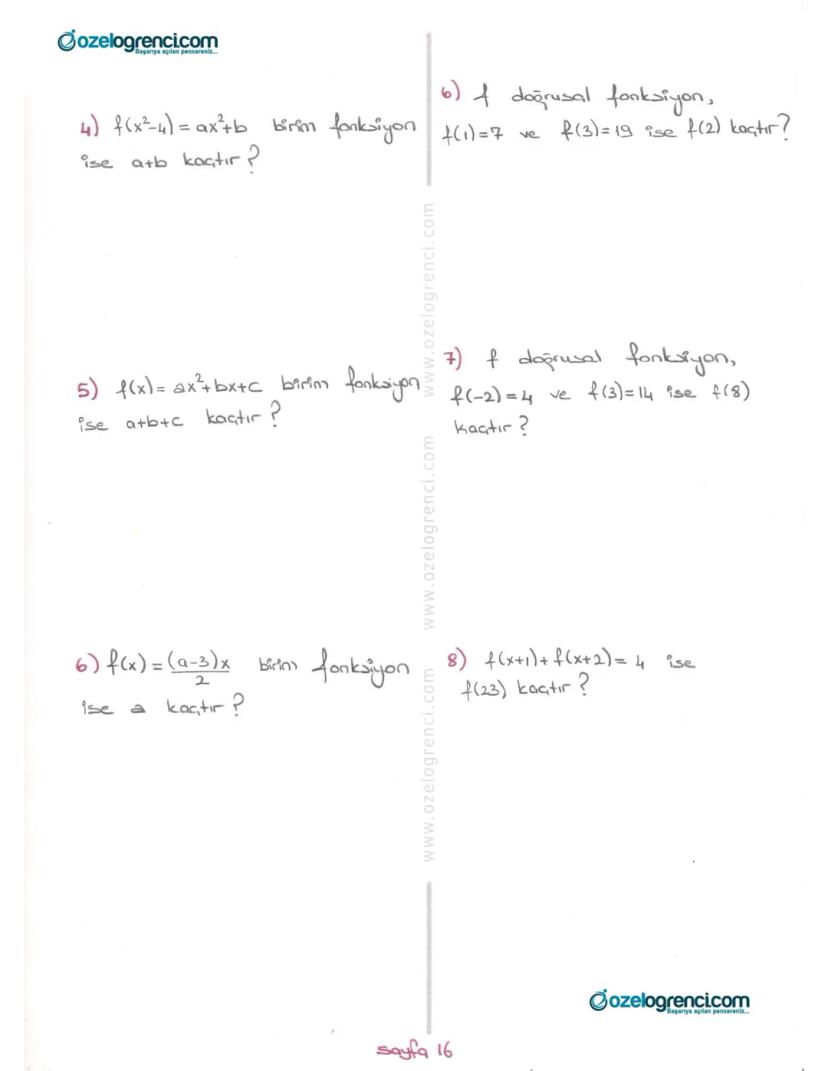 ozelogrenci.com
Başarıya açılan pencereniz...
4) f(x²-4) = ax²+b birim fonksiyon
ise a+b kaçtır?
5) f(x) = ax²+bx+c birim fonksiyon
ise a+b+c kaçtır?
6) f(x) = (a-3)x/2 birim fonksiyon
ise a kaçtır?
www.ozelogrenci.com www.ozelogrenci.com www.ozelogrenci.com
6) f doğrusal fonksiyon,
f(1)=7 ve f(3)=19 ise f(2) kaçtır?
7) f doğrusal fonksiyon,
f(-2)=4 ve f(3)=14 ise f(8)
kaçtır?
8) f(x+1)+f(x+2)= 4 ise
f(23) kaçtır?
ozelogrenci.com
Başarıya açılan pencereniz...
sayfa 16